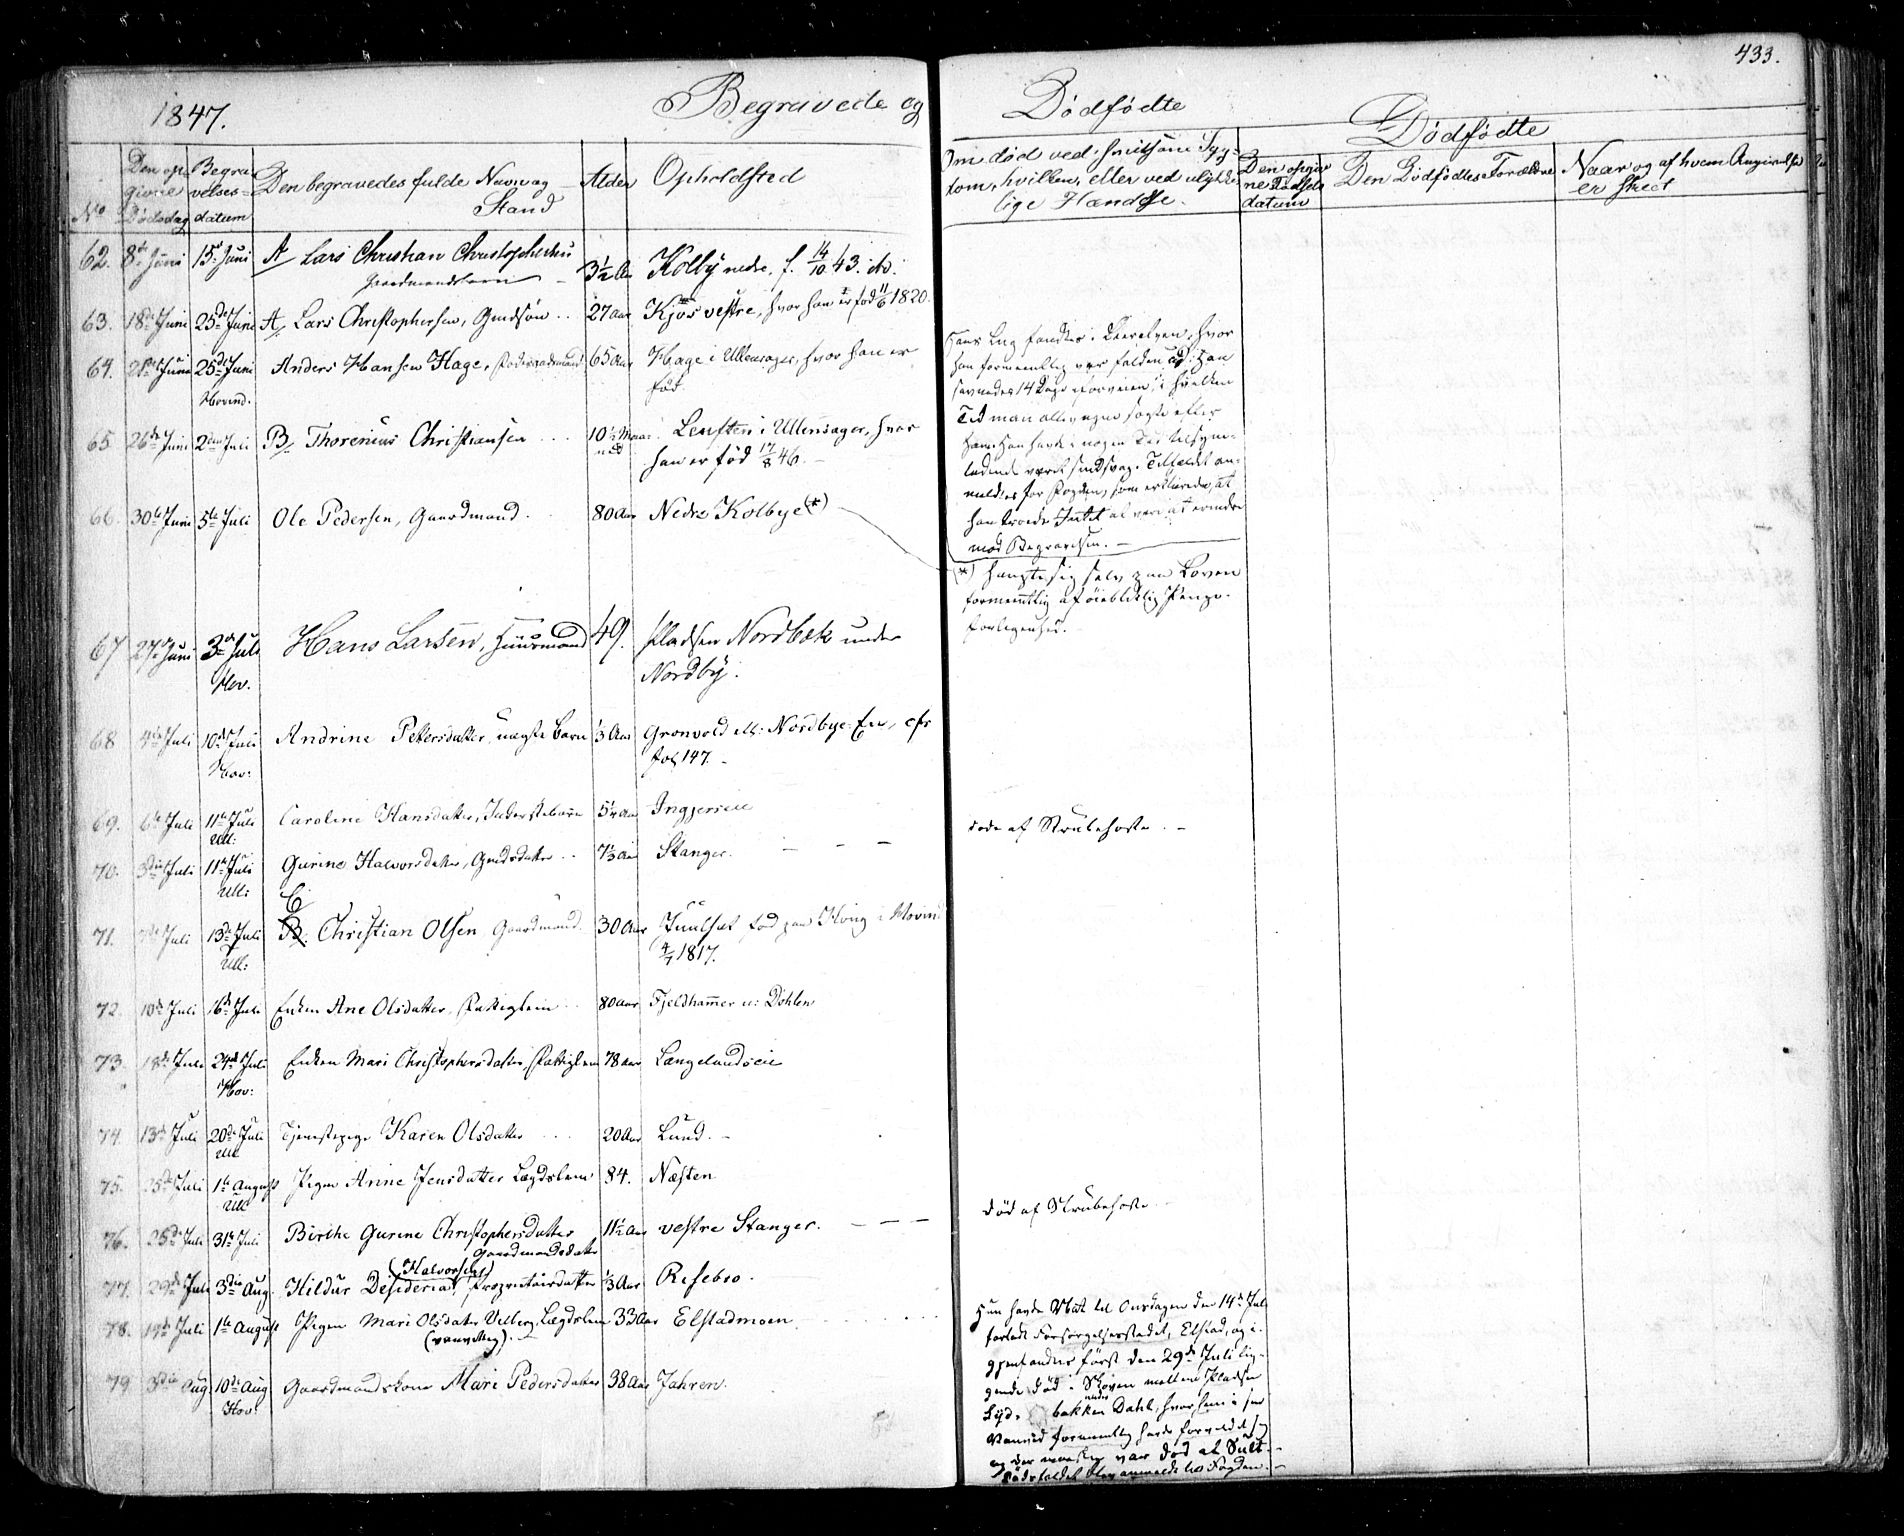 433.
1847. Begravede og Dødfødte
Dødfødte
No Den opgivne Dødsdag Begravelses-datum Den begravedes fulde Navn og Stand Alder Opholdsted
Om død ved smitsom Sygdom, hvilken, eller ved ulykkelige Hændelse.
Den opgivne Fødsels datum Den Dødfødtes Forældre Naar og af hvem Angivelse er skeet
62. 8de Juni 15de Juni A Lars Christian Christophersen 3½ Aar Kolby nedre, f. 14/10 43. ibid.
Gaardmandsbarn
63. 18de Juni 25de Juni A, Lars Christophersen, Gmdsøn 27 Aar Kjos vestre, hvor han er fød 11/6 1820.
64. 21de Juni 25de Juni Anders Hansen Hage, Føderaadsmand 65 Aar Hage i Ullensager, hvor han er
Hovind. fød
65 26de Juni 2den Juli B, Thorenius Christiansen 10½ Maaned Leufsten i Ullensager, hvor
han er fød 17/8 46.
66. 30te Juni 5te Juli Ole Pedersen, Gaardmand. 80 Aar Nedre Kolbye (*)
67 27de Juni 3de Juli Hans Larsen, Huusmand 49. Pladsen Nordbæk under
Hov. Nordby.
68 4de Juli 10de Juli Andrine Pettersdatter, uægte Barn ⅓ Aar Gronvold ell: Nordbye-Eie, cfr
Hov: fol 147.
69. 6te Juli 11te Juli Caroline Hansdatter, Inderstebarn 5¼ Aar Ingjerseie
Ull:
70. 3die Juli 11te Juli Gurine Halvorsdatter, Gmdsdatter 7⅓ Aar Stanger.
Ull: C
71. 7de Juli 13de Juli B. Christian Olsen Gaardmand. 30 Aar Juulset, fød paa Hvig i Hovin
Ull: 4/7 1817.
72. 10de Juli 16de Juli Enken Ane Olsdatter, Fattiglem 80 Aar Fjeldhammer u: Dohlen
73. 18de Juli 24de Juli Enken Mari Christophersdatter, Fattiglem 78 Aar Langelandseie
Hov:
74. 13de Juli 20de Juli Tjenestepige Karen Olsdatter 20 Aar Lund.
Ull
75. 25de Juli 1te August Pigen Anne Jensdatter Lægdslem 84. Næsten
Ull
76. 25de Juli 31te Juli Birthe Gurine Christophersdatter 11½ Aar vestre Stanger.
Gaardmandsdatter
(Halvorsen)
77. 29de Juli 3die Aug. Hildur Desideria, Proprietairdatter ⅓ Aar Risebro.
78. 14de Juli 1te August Pigen Mari Olsdatter Velberg, Lægdslem 33 Aar Elstadmoen
(vanvittig).
79 3die Aug 10de Aug Gaardmandskone Mari Pedersdatter 38 Aar Jahren.
Hov:
Hans Lig fandtes i Leeraelven, hvor
han formeentlig var falden ud. Han
savnedes 14 Dage i forveien, i hvilken
Tid man allevegne søgte efter
ham. Han havde i nogen Tid tilsyne-
ladende været sindsvag. Tilfældet an-
meldtes for Fogden, som erklærede, at
han troede Intet at være at erindre
mod Begravelsen. —
(*) hængte sig selv paa Loven
formeentlig af øieblikkelig Penge-
forlegenhed.
døde af Strubehoste. —
død af Strubehoste
Hun havde Nat til Onsdagen den 14de Juli
forladt Forsørgelsesstedet, Elstad, og i-
gjenfandtes først den 29de Juli lig-
gende død i Skoven mellem Pladsen
Lyd- bakken under Dahl, hvor hun i sin
Vanvid formeentlig havde forvildet sig
og der var død af Sult. —
Dødsfaldet blev anmeldt hos Fogden. —